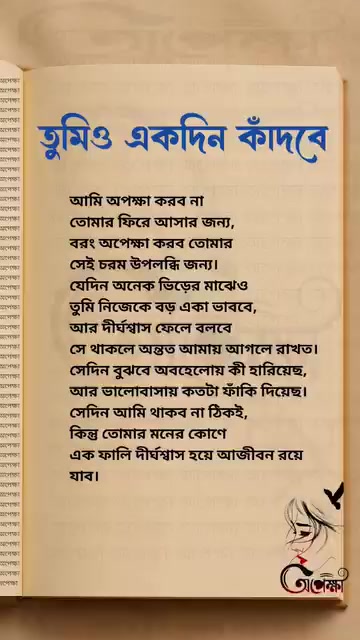 তুমিও একদিন কাঁদবে
আমি অপক্ষা করব না
তোমার ফিরে আসার জন্য,
বরং অপেক্ষা করব তোমার
সেই চরম উপলব্ধি জন্য।
যেদিন অনেক ভিড়ের মাঝেও
তুমি নিজেকে বড় একা ভাববে,
আর দীর্ঘশ্বাস ফেলে বলবে
সে থাকলে অন্তত আমায় আগলে রাখত।
সেদিন বুঝবে অবহেলোয় কী হারিয়েছ,
আর ভালোবাসায় কতটা ফাঁকি দিয়েছ।
সেদিন আমি থাকব না ঠিকই,
কিন্তু তোমার মনের কোণে
এক ফালি দীর্ঘশ্বাস হয়ে আজীবন রয়ে
যাব।
অপেক্ষা